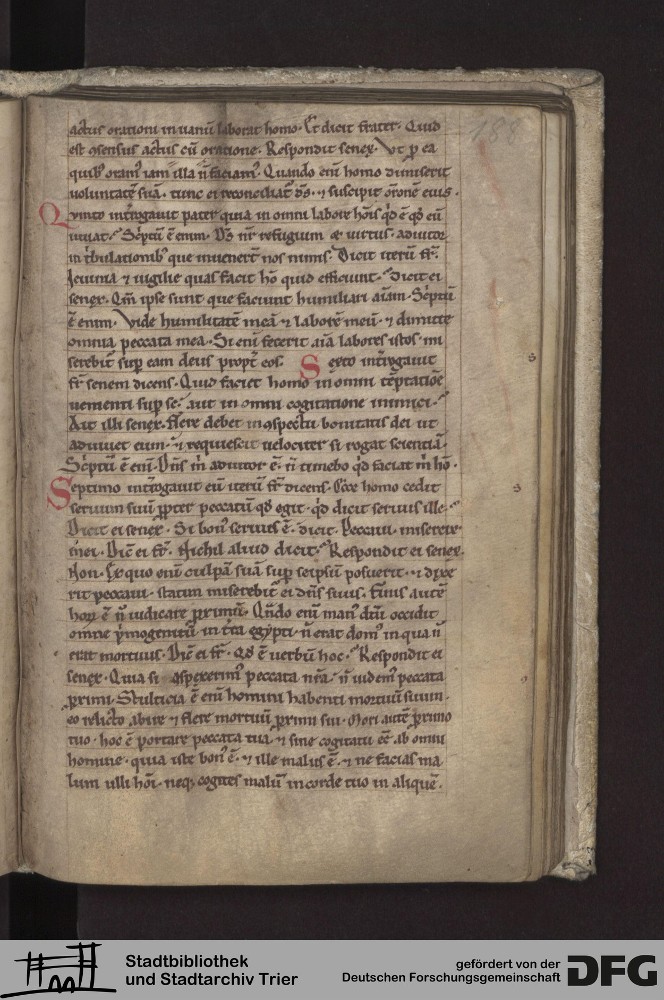 188
actus orationi in uanū laborat homo. Et dicit frater. Quid
est ɔsensus actus cū oratione. Respondit senex. Vt ꝑ ea
quib; oram; iam illa ñ faciam;. Quando eni̅ homo dimiserit
voluntatē suā. tunc ei reconciliat͛ dš. ⁊ suscipit ōronē eius.
Qvinto int͛rogauit pater quia in omni labore hōis qd̄ ē qd̄ eū
iuuat. Sc̄ptū ē enim. Dš nr̄ refugium & virtus. adiutor
in t͛bulationib; que inuenert̄ nos nimis. Dicit iterū fr̄.
Ieiunia ⁊ uigilie quas facit hō quid efficiunt. Dicit ei
senex. Qm̄ ipse sunt que faciunt humiliari aīam. Sc̄ptū
ē enim. Vide humilitatē meā ⁊ laborē meū. ⁊ dimitte
omnia peccata mea. Si eni̅ fecerit aīa labores istos mi
serebit͛ sup̄ eam deus propt͛ eos. Sexto int͛rogauit
fr̄ senem dicens. Quid faciet homo in omni tēptatiōe
uementi sup̄ se. aut in omni cogitatione inimici.
Ait illi senex. Flere debet in ɔspectu bonitatis dei ut
adiuuet eum. ⁊ requiescit uelociter si rogat scientiā.
Sc̄ptū ē eni̅. Dn̄s m̄ adiutor ē. ñ timebo qd̄ faciat m̄ hō.
Septimo int͛rogauit eū iterū fr̄ dicens. Ecce homo cedit
seruum suū ꝓpter peccatū qd̄ egit. qd̄ dicit seruus ille.
Dicit ei senex. Si bon; seruus ē. dicit. Peccaui. miserere
mei. Dic̄ ei fr̄. Nichil aliud dicit. Respondit ei senex.
Non. Ex quo eni̅ culpā suā sup̄ seipsū posuerit. ⁊ dixe
rit peccaui. statim miserebit͛ ei dn̄s suus. Finis autē
horꝝ ē ñ iudicare ꝓximū. Qn̄do eni̅ man; dn̄i occidit
omne p͛mogenitū in t͛ra egypti. ñ erat dom; in qua ñ
erat mortuus. Dic̄ ei fr̄. Qd̄ ē uerbū hoc. Respondit ei
senex. Quia si ɔspexerim; peccata nr̄a. ñ uidem; peccata
ꝓximi. Stulticia ē eni̅ homini habenti mortuū suum.
eo relicto abire ⁊ flere mortuū ꝓximi sui. Mori autē ꝓximo
tuo. hoc ē portare peccata tua. ⁊ sine cogitatu eē ab omni
homine. quia iste bon; ē. ⁊ ille malus ē. ⁊ ne facias ma
lum ulli hōi. neq; cogites malū in corde tuo in aliquē.
Stadtbibliothek
und Stadtarchiv Trier
gefördert von der
Deutschen Forschungsgemeinschaft
DFG